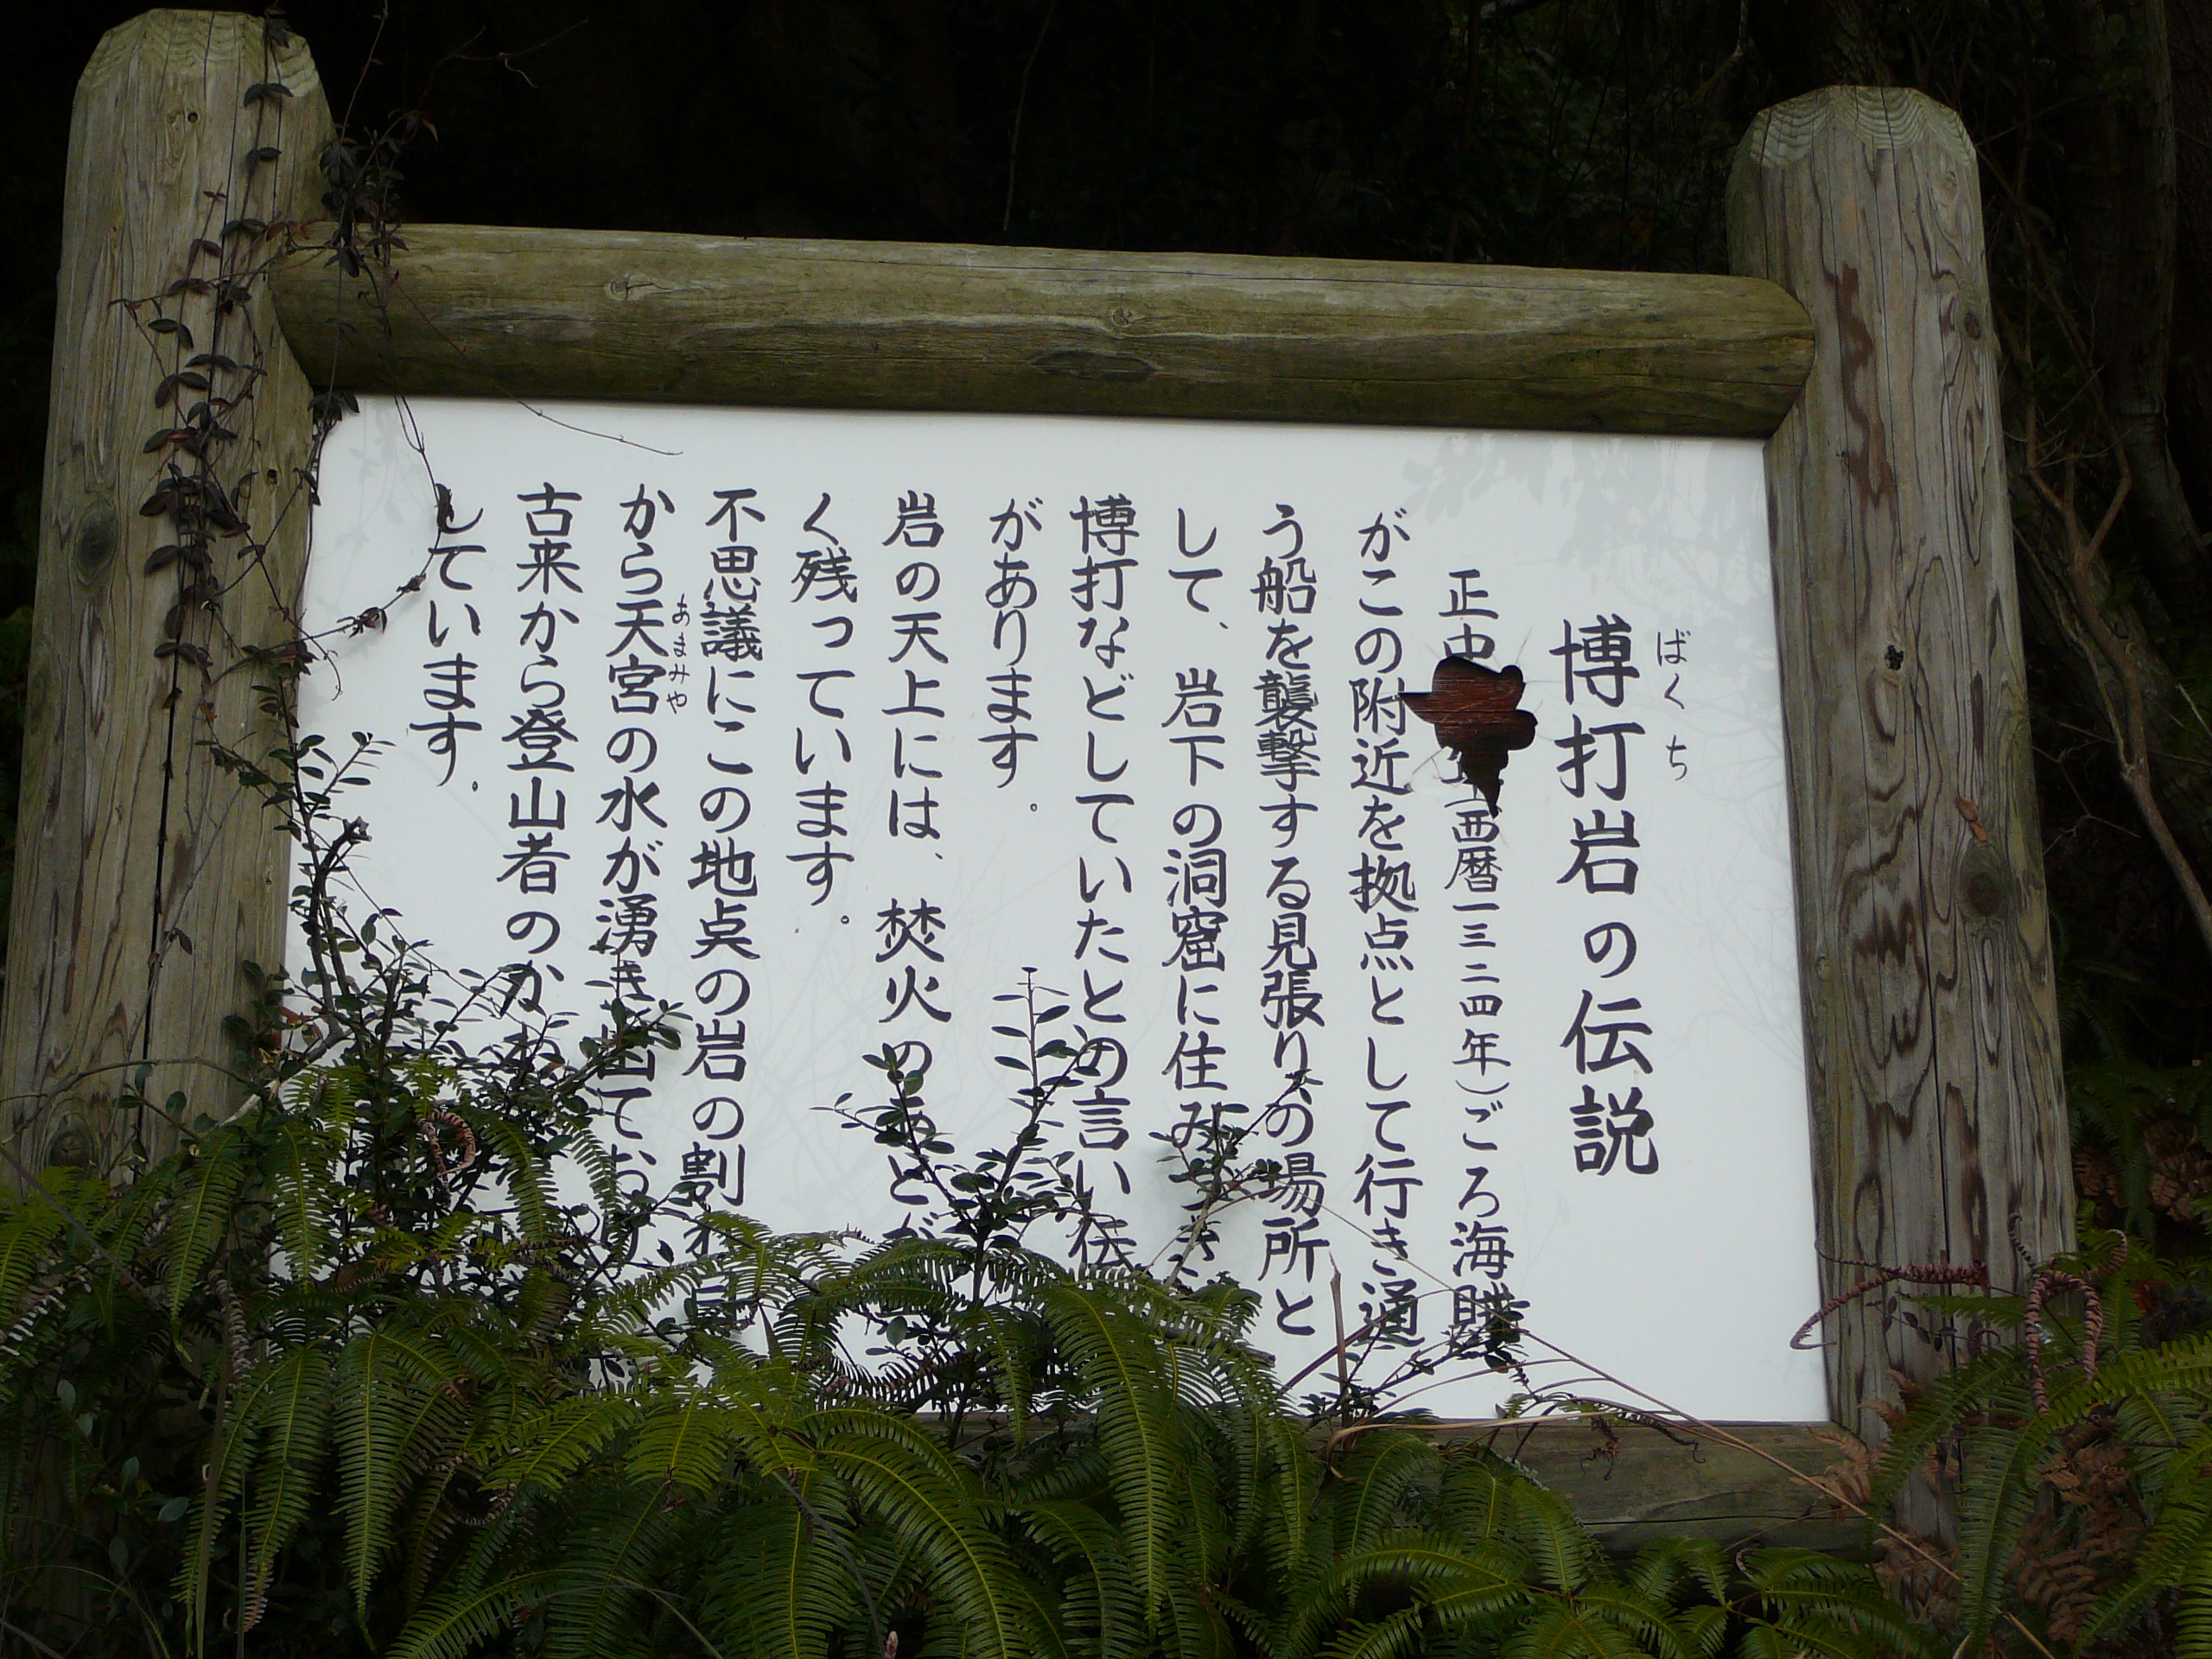 博打岩の伝説
ばくち
正中 年(西暦一三二四年)ごろ海賊
がこの附近を拠点として行き通
う船を襲撃する見張りの場所と
して、岩下の洞窟に住みつき
博打などしていたとの言い伝
があります。
岩の天上には、焚火のあとが
く残っています。
不思議にこの地点の岩の割れ目
から天宮の水が湧き出ており、
あまみや
古来から登山者のか
しています。